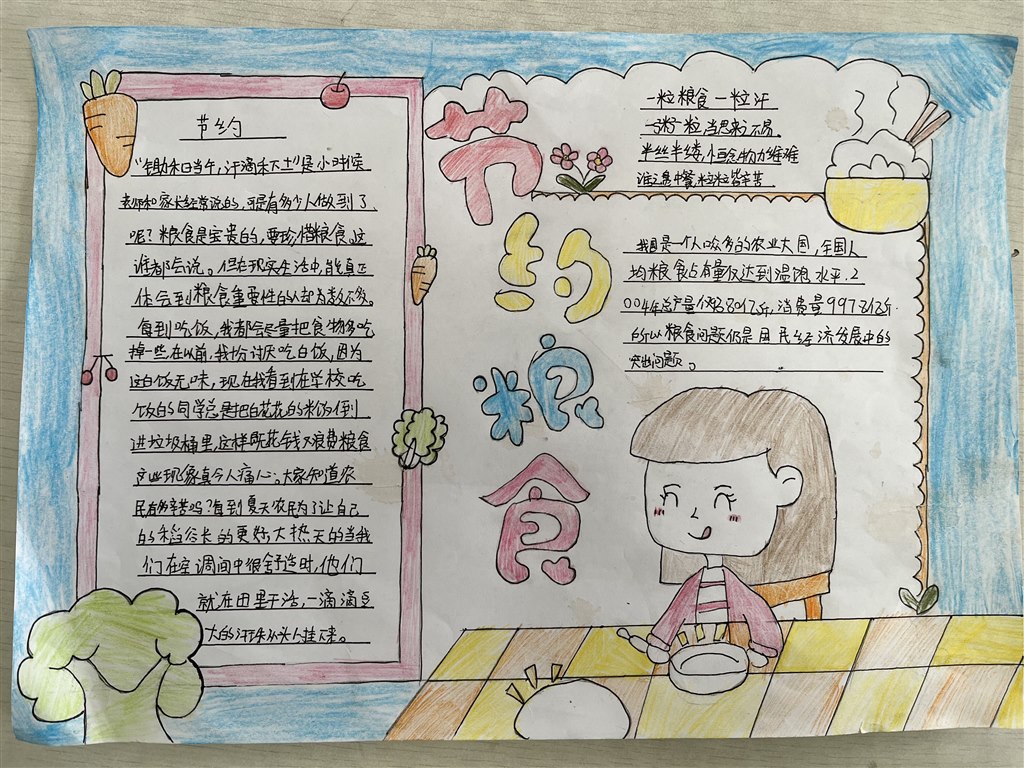 节约
"锄禾日当午,汗滴禾下土"是小时候
老师和家长经常说的,可是有多少人做到了
呢?粮食是宝贵的,要珍惜粮食。这
谁都会说。但在现实生活中,能真正
体会到粮食重要性的人却为数不多。
每到吃饭,我都会尽量把食物多吃
掉一些,在以前,我十分讨厌吃白饭,因为
这白饭无味,现在我看到在学校吃
饭的同学总是把白花花的米饭倒
进垃圾桶里,这样既花钱又浪费粮食
这些现象真令人痛心。大家知道农
民有多辛苦吗?每到夏天农民为了让自己
的稻谷长的更好,大热天的当我
们在空调间中很舒适时,他们
就在田里干活,一滴滴豆
大的汗珠从头上挂下来。
节约粮食
一粒粮食一粒汗
一粥一粒,当思来不易,
半丝半缕,恒念物力维难
谁知盘中餐,粒粒皆辛苦
我国是一个人口众多的农业大国,全国人
均粮食占有量仅达到温饱水平.2
004年总产量
亿斤,消费量9978亿斤.
所以粮食问题仍是国民经济发展中的
突出问题。